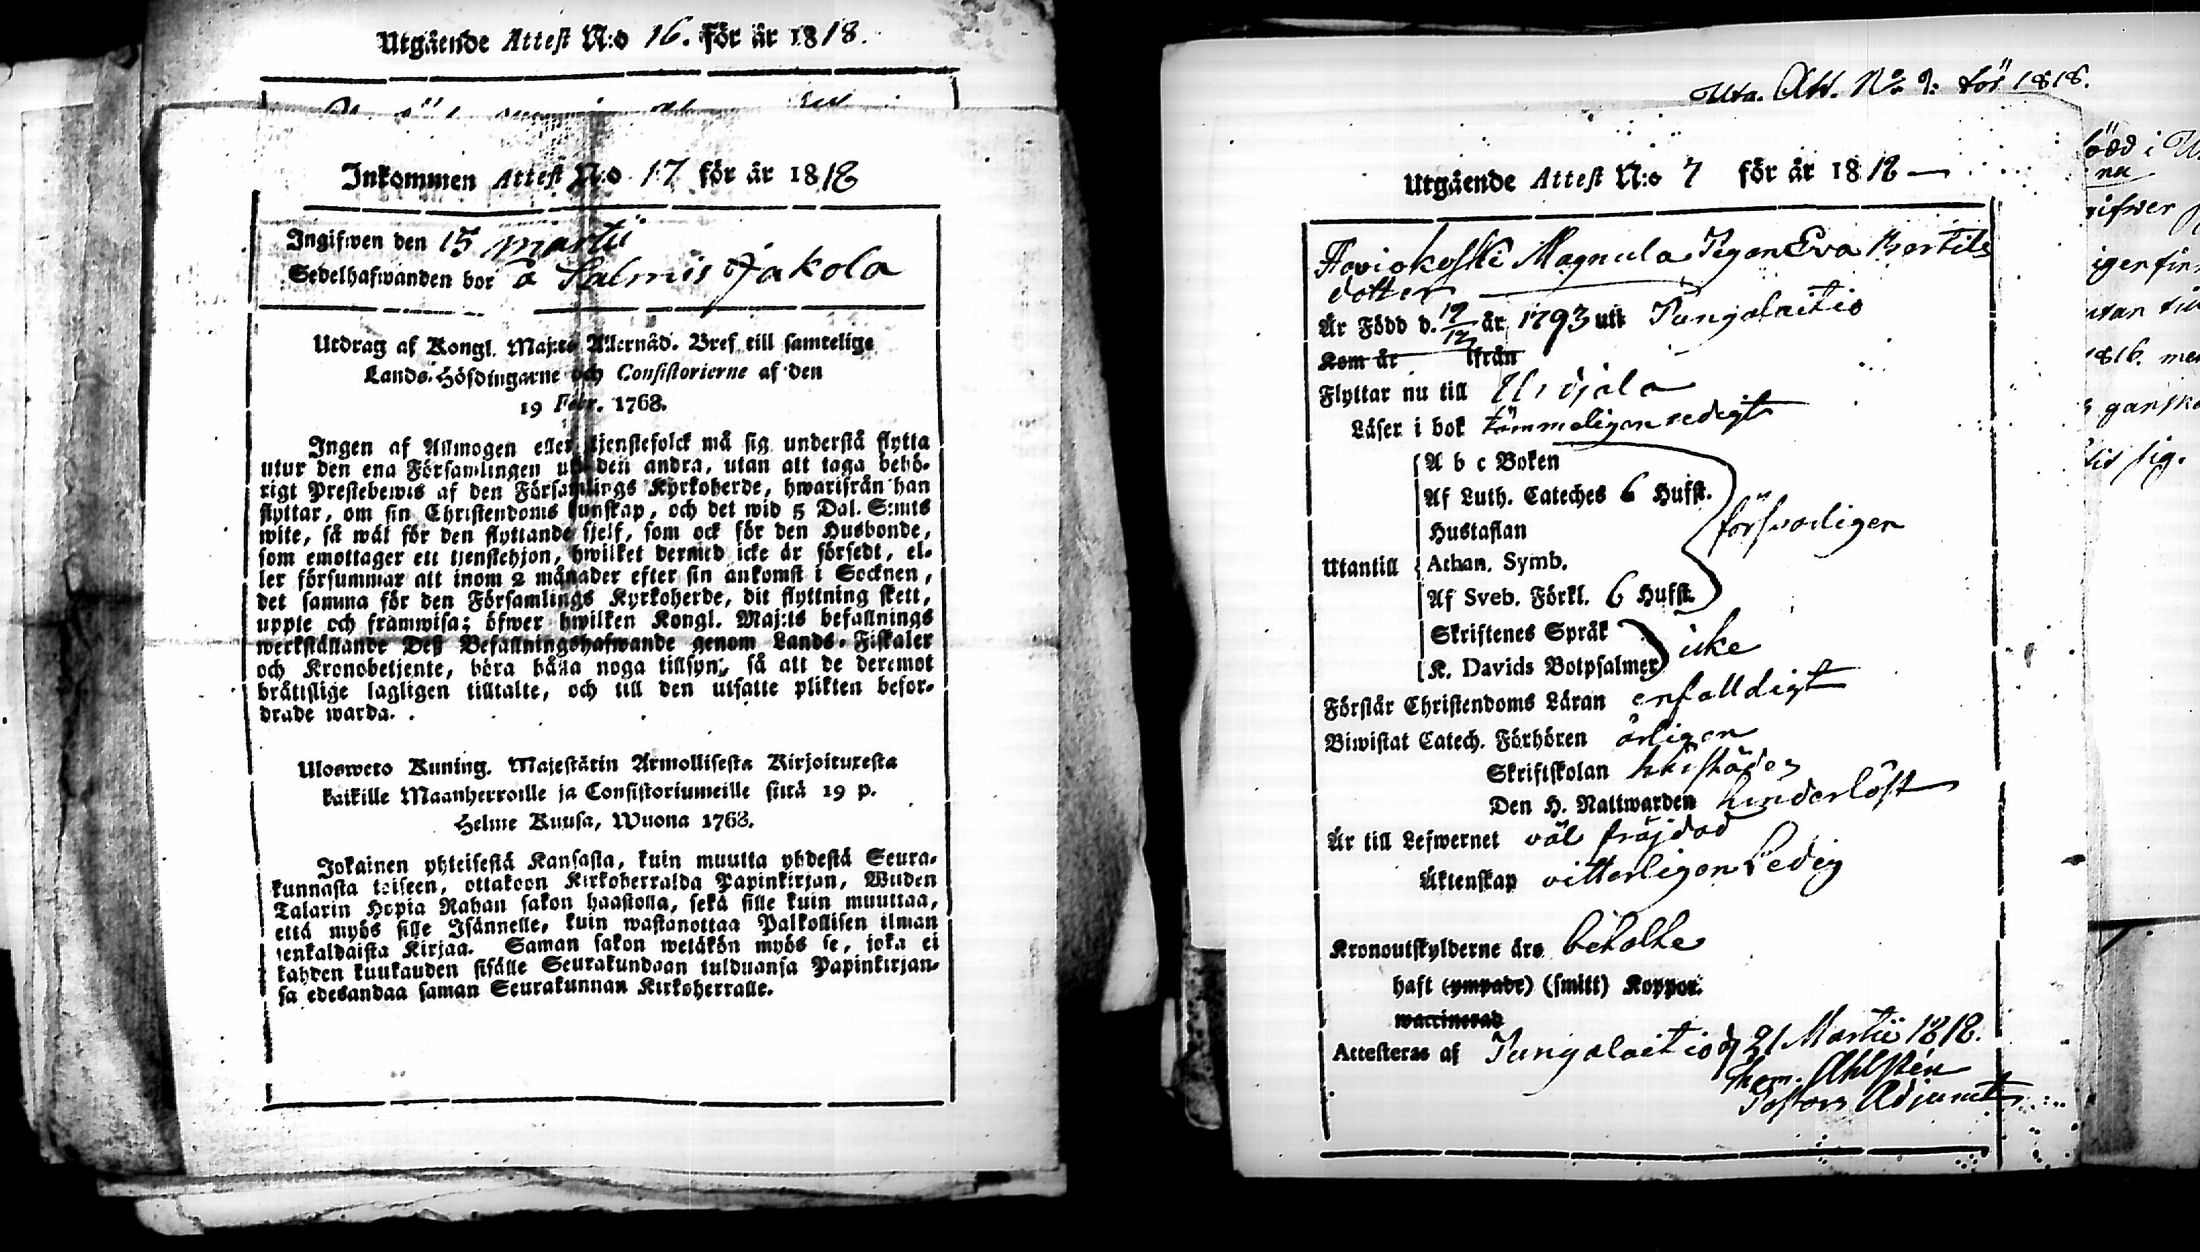 Utgående Attest N:o 16. för år 1818.
Inkommen Attest N:o 17 för år 1818
Ingifwen den 15 martii
Sedelhafwanden bor å Salmis Jakola
Utdrag af Kongl. Maj:ts Allernåd. Bref till samtelige
Lands-Höfdingarne och Consistorierne af den
19 Febr. 1768.
Ingen af Allmogen eller tjenstefolck må sig understå flytta
utur den ena Församlingen uti den andra, utan att taga behö-
rigt Prestebewis af den Församlings Kyrkoherde, hwarifrån han
flyttar, om sin Christendoms kunskap, och det wid 5 Dal. S:mts
wite, så wäl för den flyttande sjelf, som ock för den Husbonde,
som emottager ett tjenstehjon, hwilket dermed icke är försedt, el-
ler försummar att inom 2 månader efter sin ankomst i Socknen,
det samma för den Församlings Kyrkoherde, dit flyttning skett,
uppte och framwisa; öfwer hwilken Kongl. Maj:ts befallnings
werkställande Deß Befallningshafwande genom Lands-Fiskaler
och Kronobetjente, böra hålla noga tillsyn, så att de deremot
bråttslige lagligen tilltalte, och till den utsatte plikten befor-
drade warda.
Ulosweto Kuning. Majestätin Armollisesta Kirjoituxesta
kaikille Maanherroille ja Consistoriumeille siitä 19 p.
Helme Kuusa, Wuona 1768.
Jokainen yhteisestä Kansasta, kuin muutta yhdestä Seura-
kunnasta toiseen, ottakoon Kirkoherralda Papinkirjan, Wuden
Talarin Hopia Rahan sakon haastolla, sekä sille kuin muuttaa,
että myös sille Isännelle, kuin wastanottaa Palkollisen ilman
senkaldaista Kirjaa. Saman sakon wetäkön myös se, joka ei
kahden kuukauden sisälle Seurakundaan tulduansa Papinkirjan-
sa edesandaa saman Seurakunnan Kirkoherralle.
Utg. Att. No 9: för 1818.
Utgående Attest N:o 7 för år 1818
Magnula Pigan Eva Bertils
dotter
Är Född d. 19/12 år 1793 uti Pungalaitio
Kom år ifrån
Flyttar nu till Urdiala
Läser i bok tämmeligen redigt
A b c Boken
Af Luth. Cateches 6 Hufst.
Hustaflan
försvarligen
Utantill Athan. Symb.
Af Sveb. Förkl. 6 Hufst.
Skriftenes Språk
icke
K. Davids Botpsalmer
Förstår Christendoms Läran enfalldigt
Biwistat Catech. Förhören årligen
Skriftskolan
Den H. Nattwarden hinderlöst
Är till Lefwernet väl fräjdad
Äktenskap vitterligen Ledig
Kronoutskylderne äro betalte
haft (ympade) (smitt) Koppor.
waccinerad
Attesteras af Pungalaitio d 21 Martii 1818.
Thom. Ahlstén
Pastors Adjunct